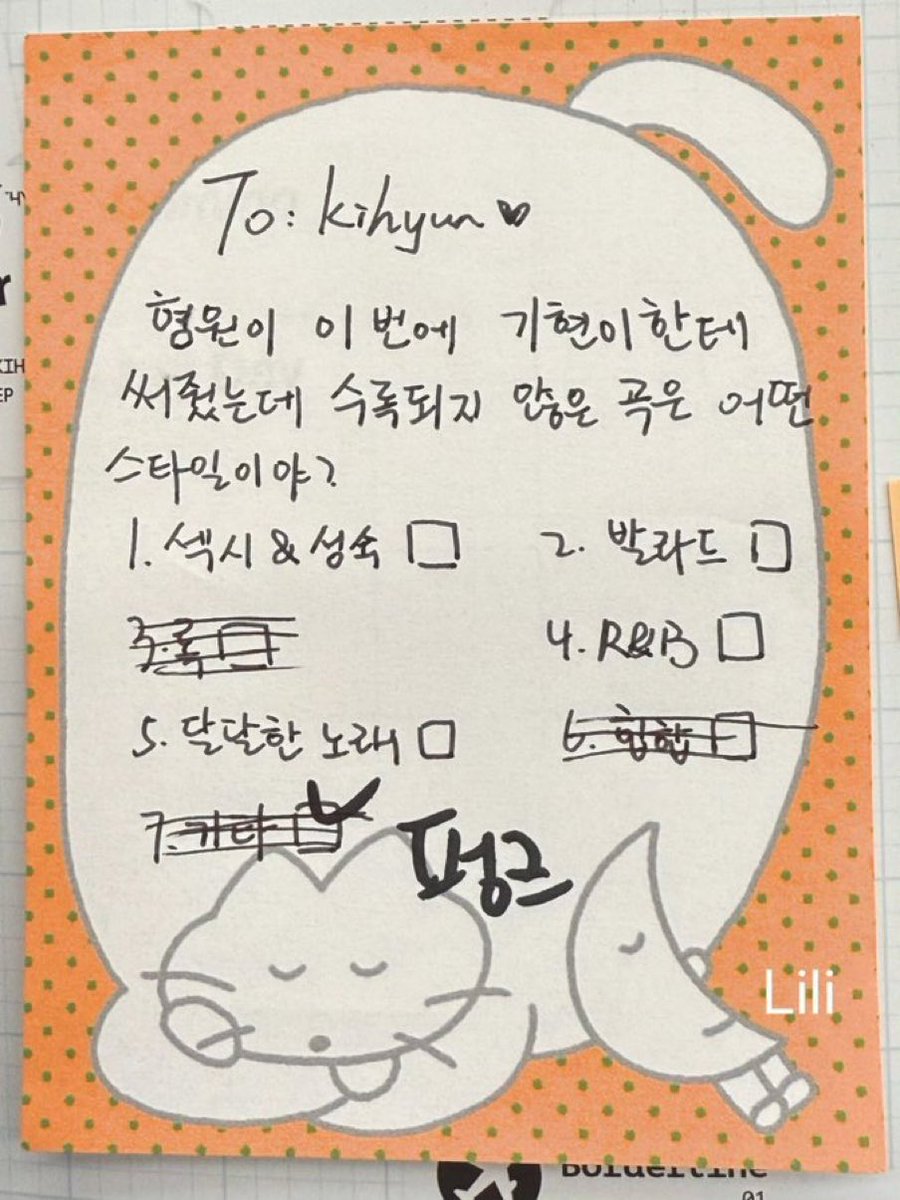 To: kihyun ♥
형원이 이번에 기현이한테
써줬는데 수록되지 않은 곡은 어떤
스타일이야?
1. 섹시 & 성숙 □ 2. 발라드 □
3. 록 □ 4. R&B □
5. 달달한 노래 □ 6. 힙합 □
7. 기타 □ ✓ 펑크
Lili
KIH
EP
Borderline
01